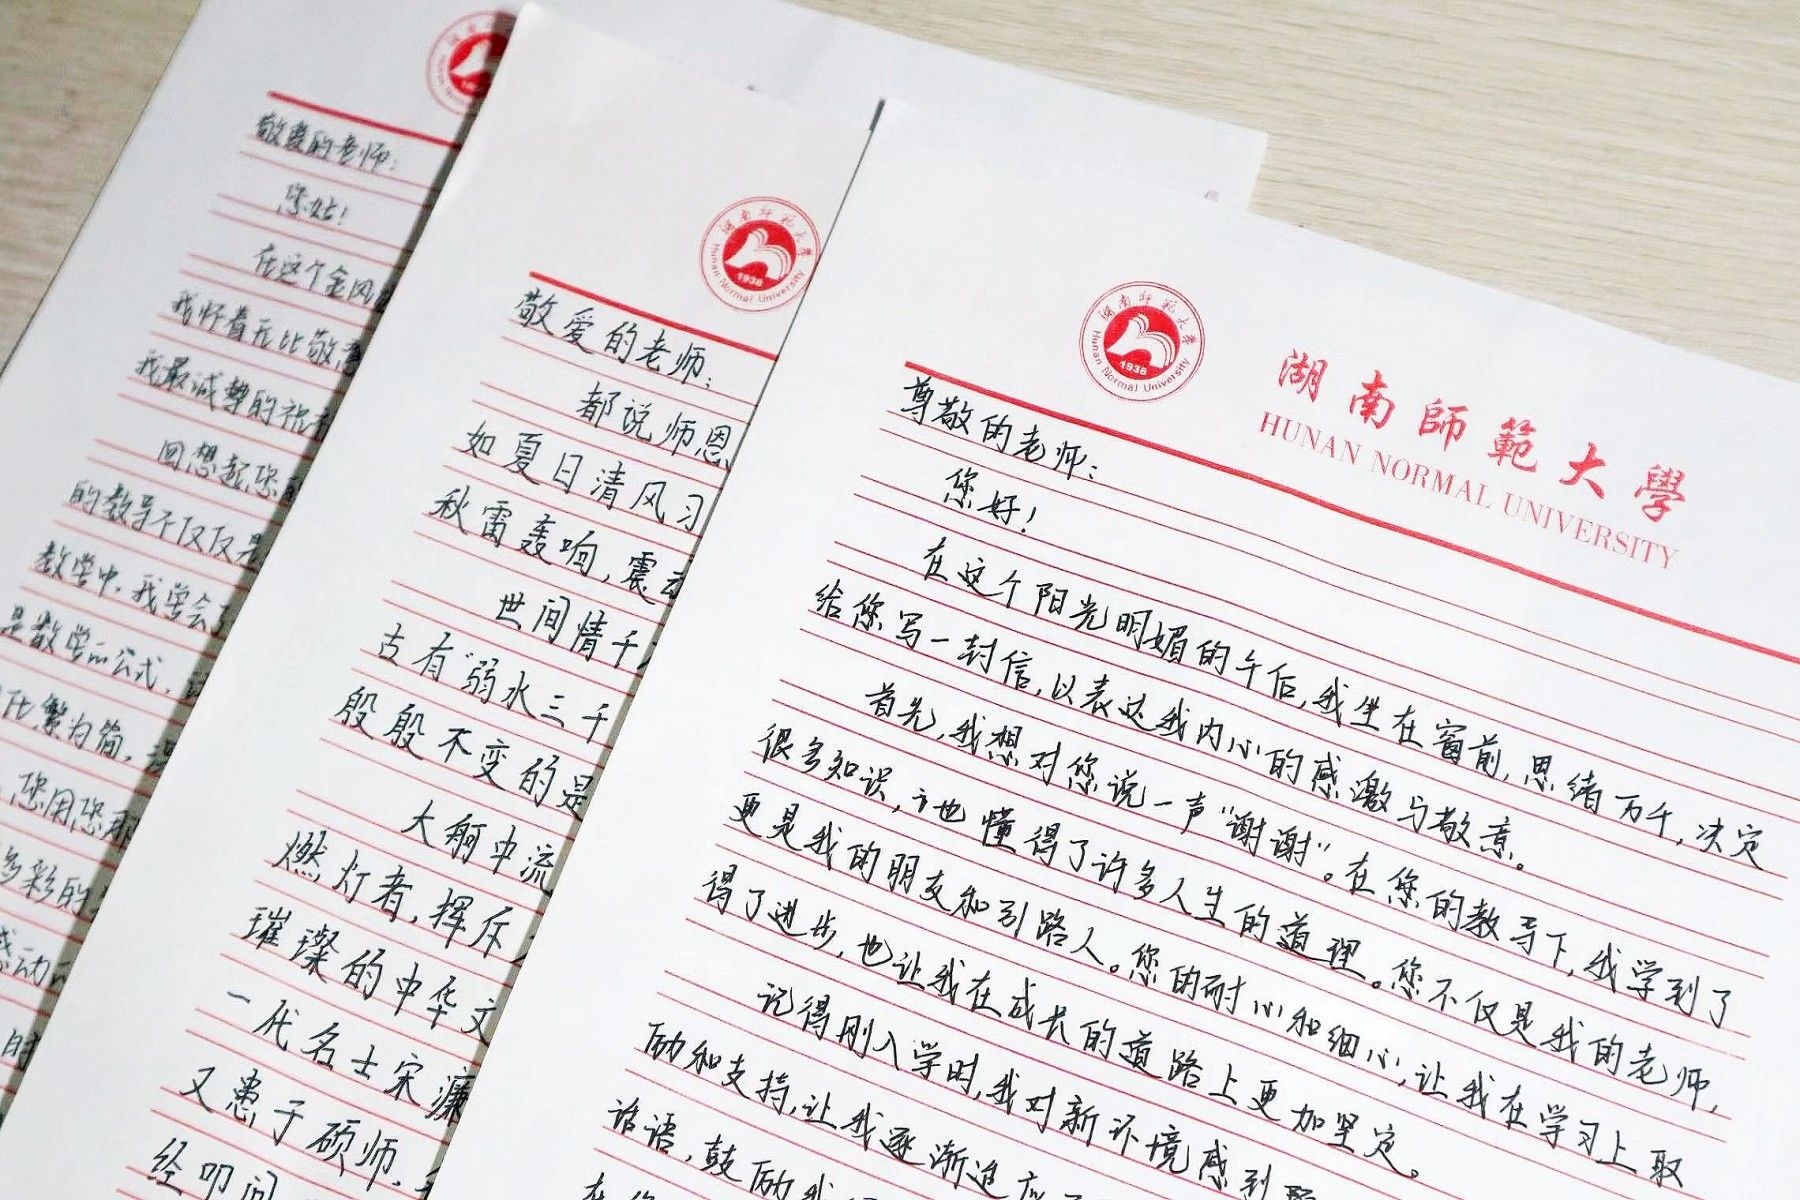 敬爱的老师:
您好!
在这个金风
我怀着无比敬
我最诚挚的祝
回想起您
的教导不仅仅是
教学中,我学会了
是数学的公式,
化繁为简,
您用您
多彩的
感动
的
湖南师范大学
Hunan Normal University
1938
敬爱的老师:
都说师恩
如夏日清风习
秋雷轰响,震动
世间情千
古有“弱水三千
殷殷不变的是
大舸中流
燃灯者,挥斥
璀璨的中华文
一代名士宋濂
又患于硕师.
经叩问
湖南师范大学
Hunan Normal University
1938
湖南師範大學
HUNAN NORMAL UNIVERSITY
尊敬的老师:
您好!
在这个阳光明媚的午后,我坐在窗前,思绪万千,决定
给您写一封信,以表达我内心的感激与敬意。
首先,我想对您说一声“谢谢”。在您的教导下,我学到了
很多知识,也懂得了许多人生的道理。您不仅是我的老师,
更是我的朋友和引路人。您的耐心和细心,让我在学习上取
得了进步,也让我在成长的道路上更加坚定。
记得刚入学时,我对新环境感到
励和支持,让我逐渐适应
话语,鼓励我
在您